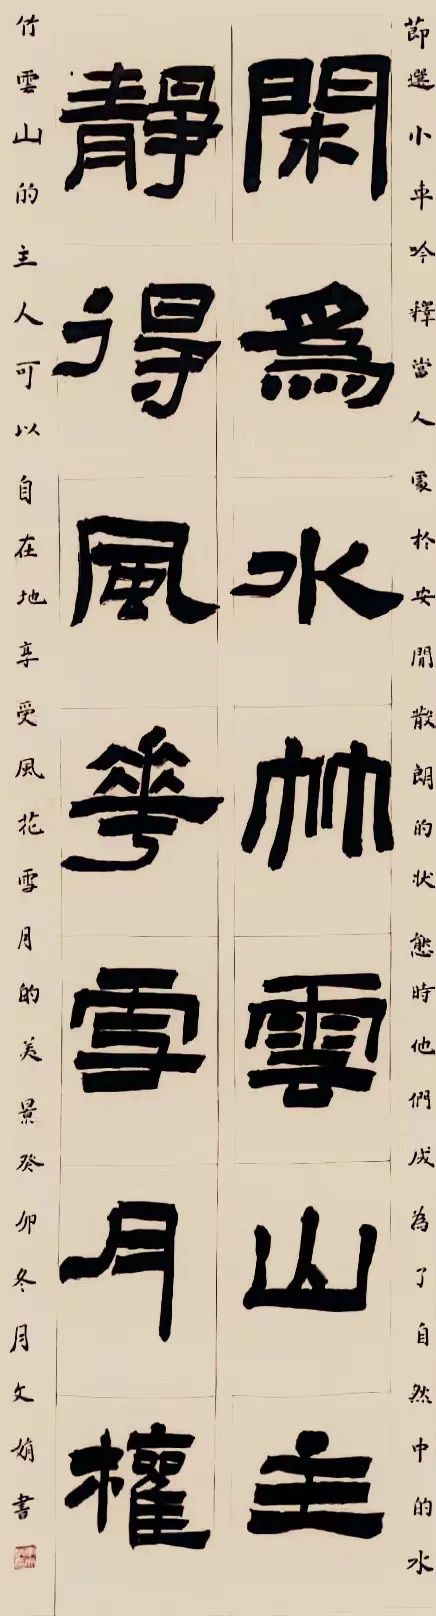 節選小車吟釋當人處於安閒散朗的狀態時他們成為了自然中的水
閑為水竹雲山主
靜得風華雪月權
竹雲山的主人可以自在地享受風花雪月的美景癸卯冬月文娟書